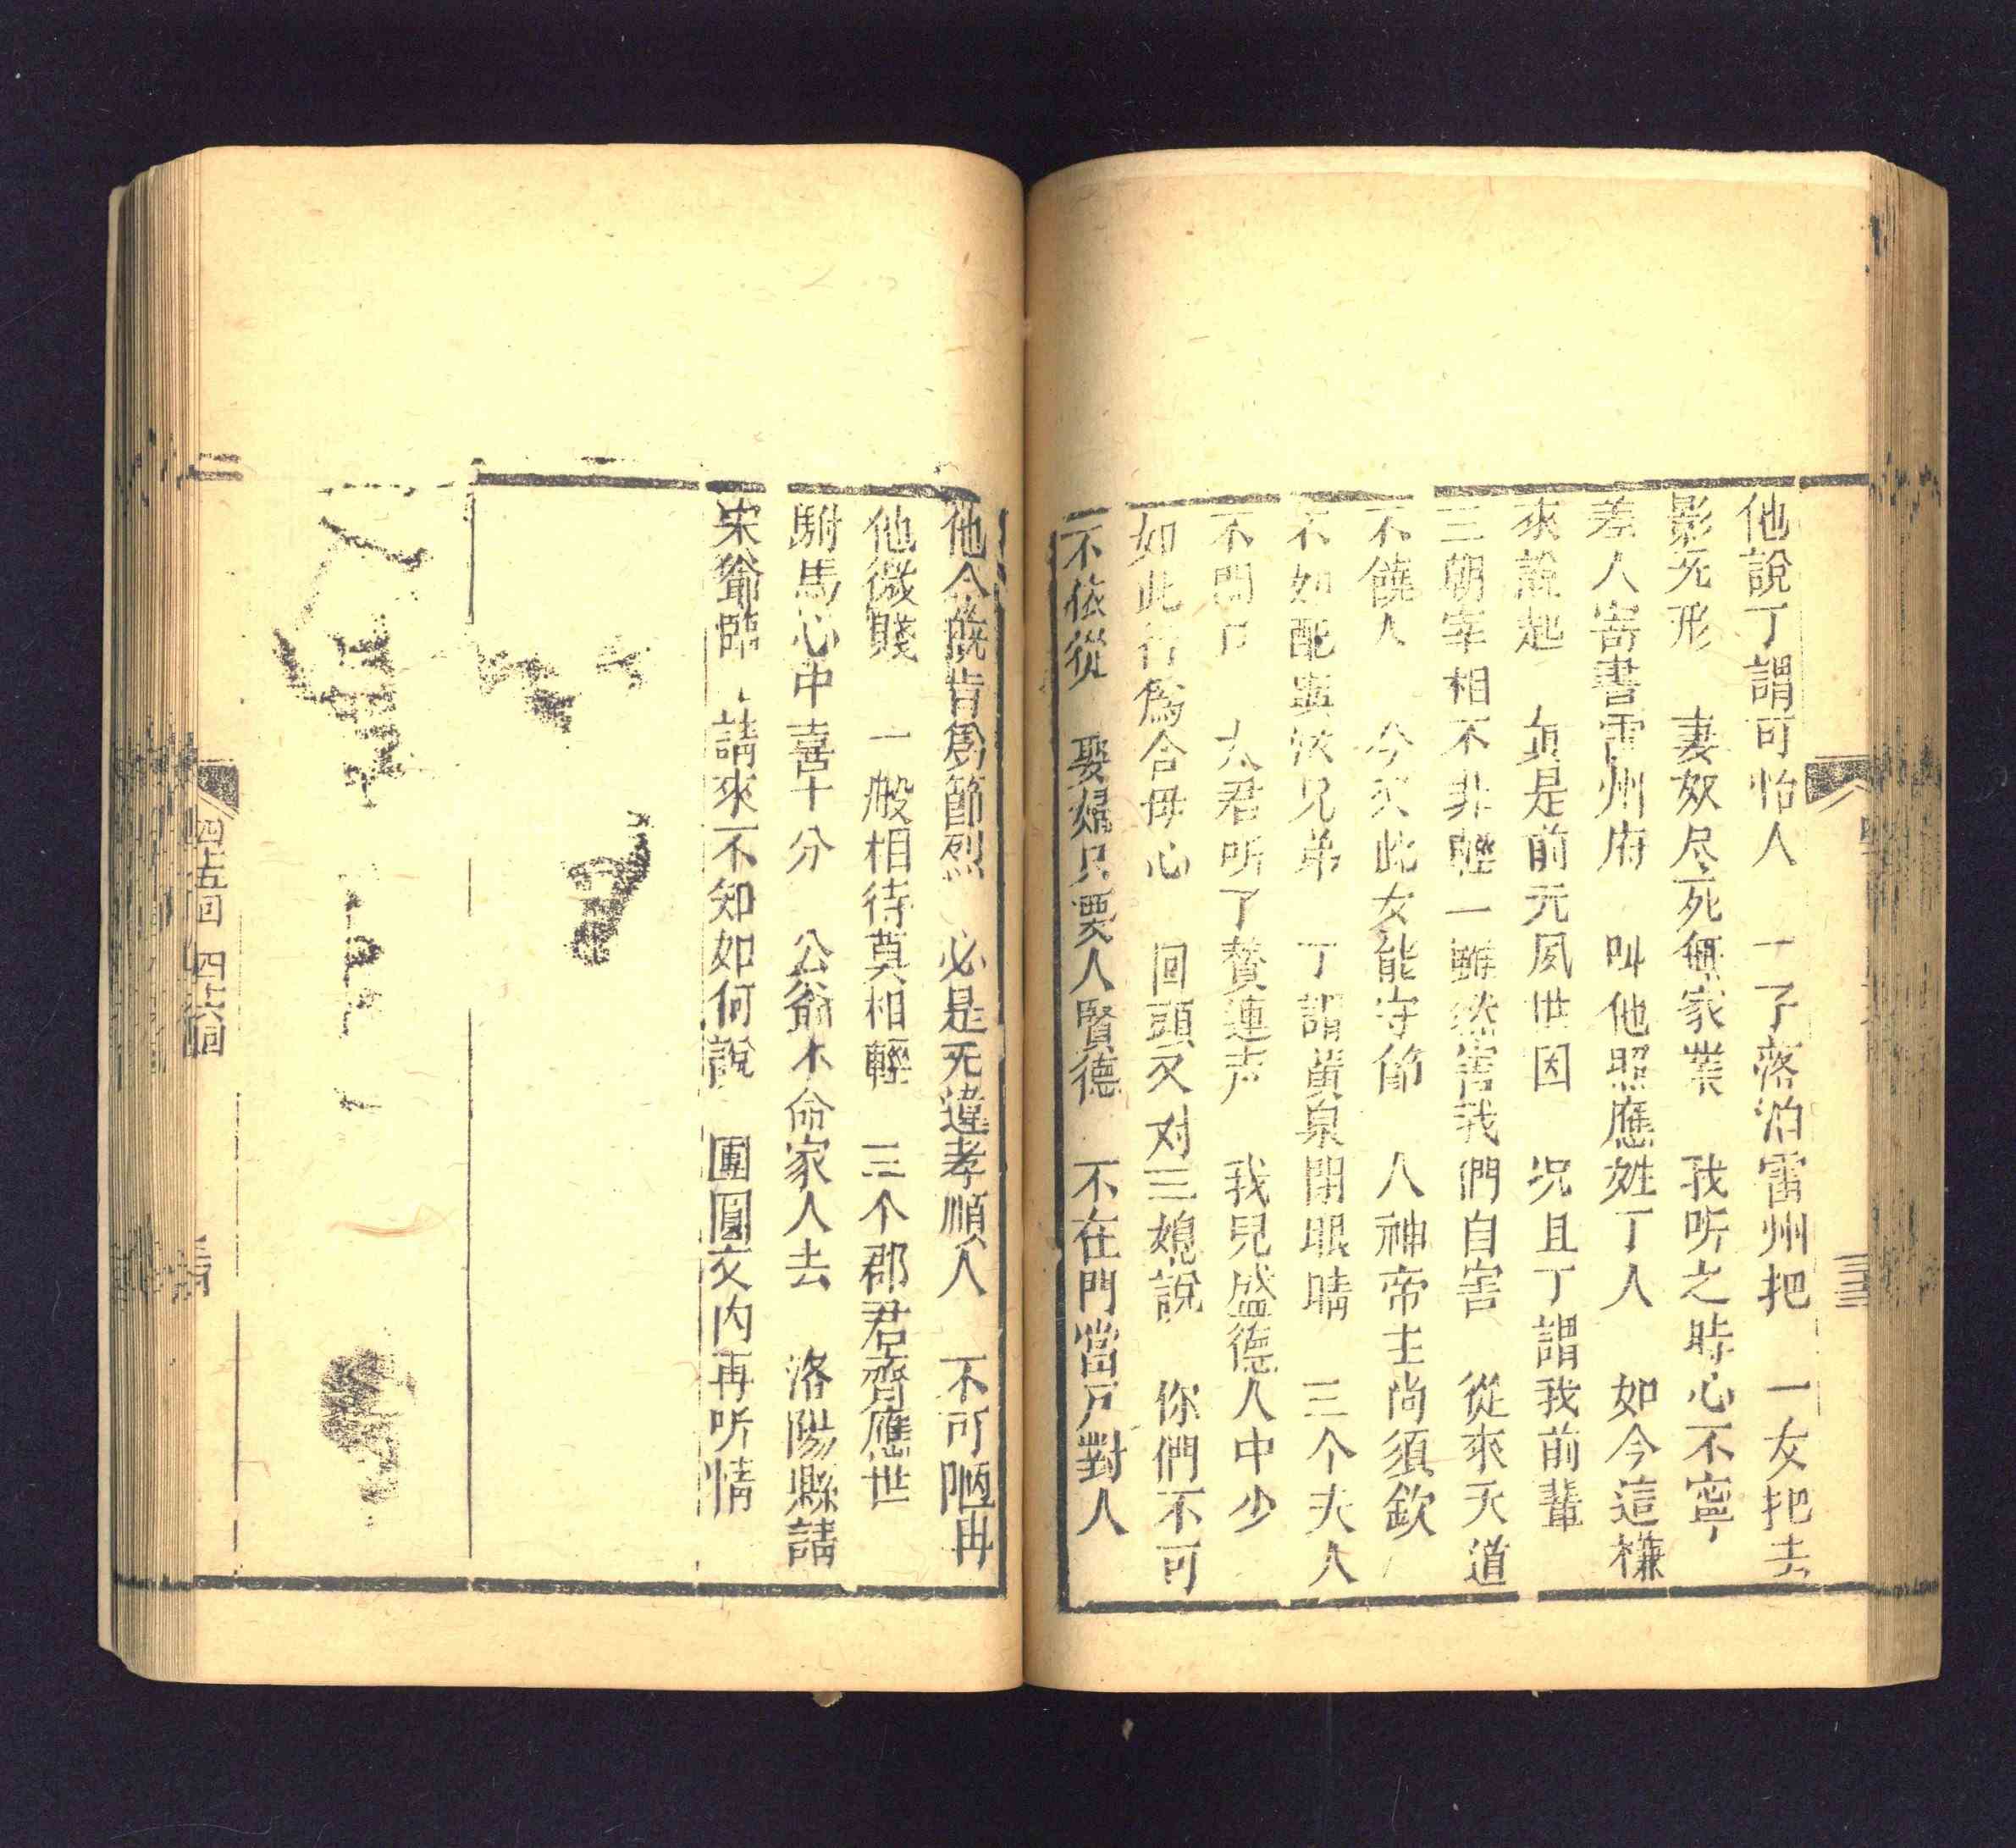 他說丁謂可怕人　一子落泊雷州把　一女把去
影无形　妻奴尽死無家業　我听之時心不寧
差人寄書雷州府　叫他照應姓丁人　如今這樣
來說起　眞是前元夙世因　况且丁謂我前輩
三朝宰相不非輕　雖然害我們自害　從來天道
不饒人　今次此女能守節　人神帝主尚須欽
不如配與汝兄弟　丁謂黃泉閉眼睛　三个夫人
不開口　太君听了贊連声　我兒盛德人中少
如此行爲合母心　回頭又对三媳說　你們不可
不依從　娶婦只要人賢德　不在門當戸對人
他今既肯爲節烈　必是死違孝順人　不可陋
他微賤　一般相待莫相輕　三个郡君齊應世
駙馬心中喜十分　公爺本命家人去　洛陽縣請
宋爺臨　請來不知如何說　團圓文内再听情
四五回　四六回